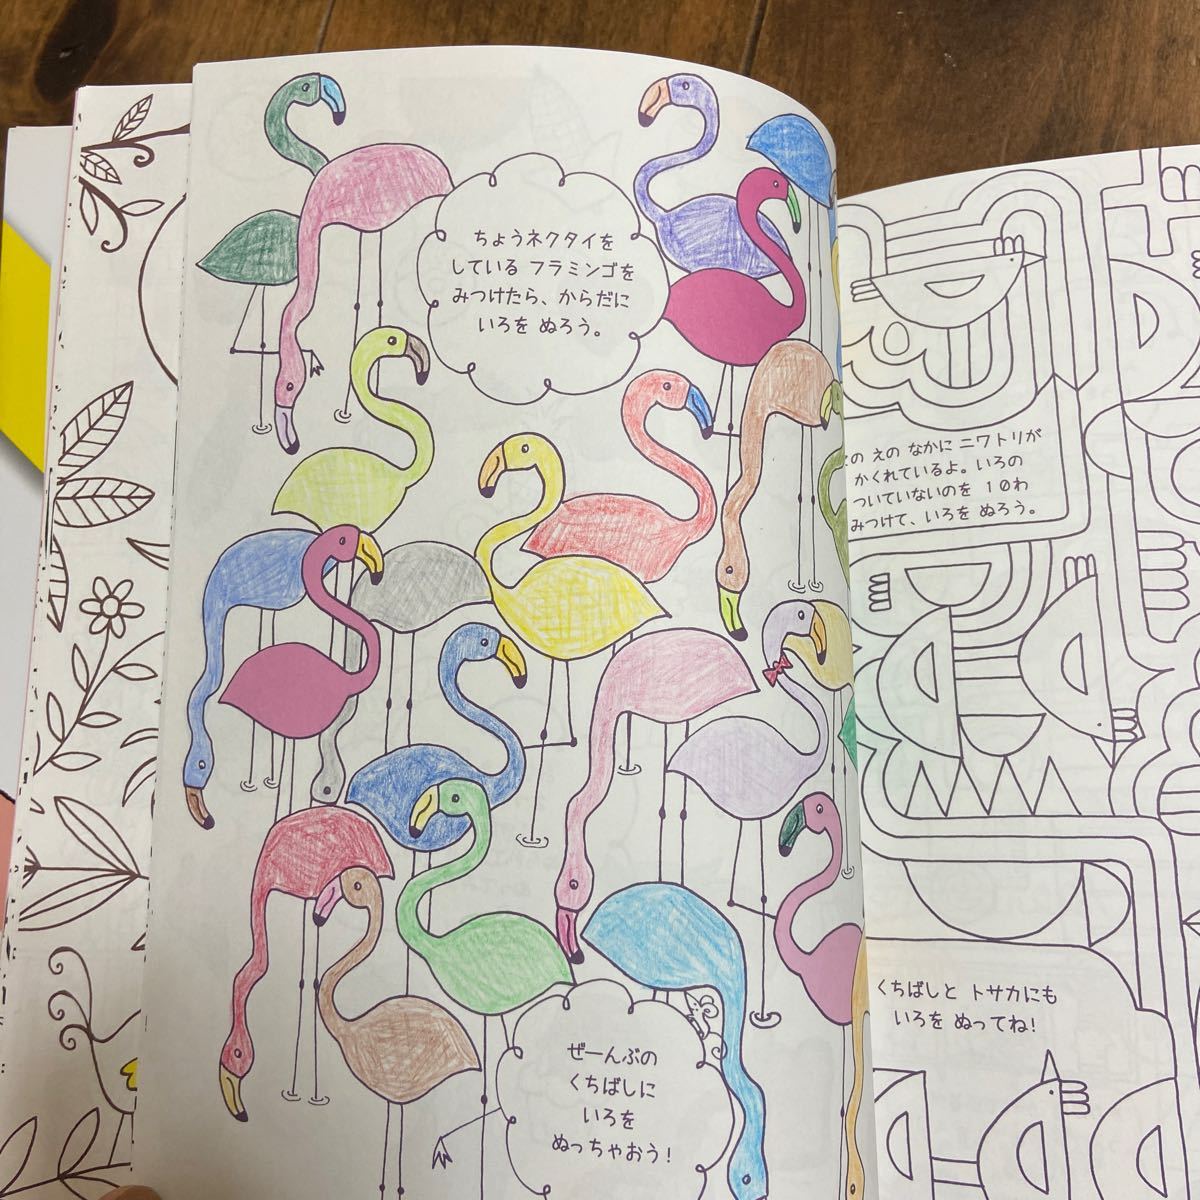 ちょうネクタイを
している フラミンゴを
みつけたら、からだに
いろを ぬろう。
ぜーんぶの
くちばしに
いろを
ぬっちゃおう！
えの なかに ニワトリが
かくれているよ。いろの
ついていないのを 10わ
みつけて、いろを ぬろう。
くちばしと トサカにも
いろを ぬってね！